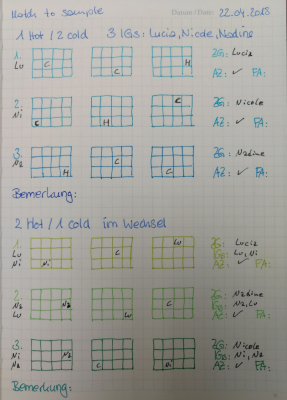 Match to sample Datum/Date: 22.04.2018
1 Hot / 2 cold 3 IGs: Lucia, Nicole, Nadine
1. ZG: Lucia
Lu C C H AZ: ✓ FA:
2. C ZG: Nicole
Ni C H AZ: ✓ FA:
3. C ZG: Nadine
Na H C AZ: ✓ FA:
Bemerkung:
2 Hot / 1 cold im Wechsel
1. Lu ZG: Lucia
Lu C IG: Lu, Ni
Ni Ni AZ: ✓ FA:
2. ZG: Nadine
Na Na C IG: Na, Lu
Lu Lu AZ: ✓ FA:
3. ZG: Nicole
Ni Na IGs: Ni, Na
Na C Ni AZ: ✓ FA:
Bemerkung: